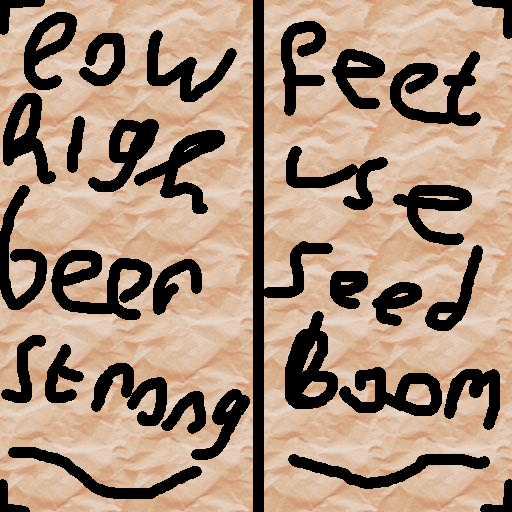 low
high
beer
strong
feet
use
seed
boom